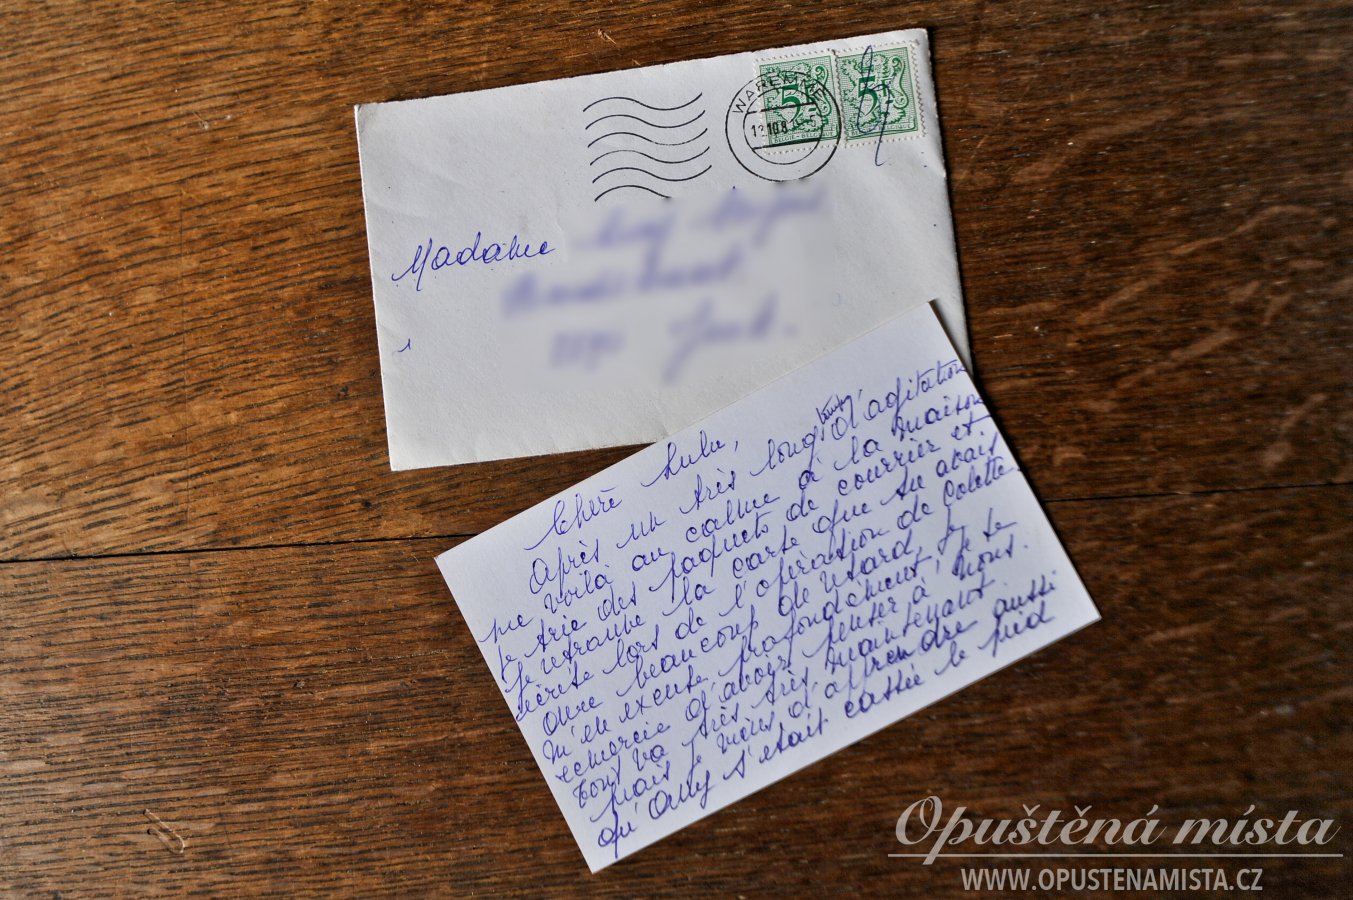 WAREMME
5
5
Madame
Chère Lulu,
Après un très long temps d'agitation
me voilà au calme à la maison
je trie des paquets de courrier et
je retrouve la carte que tu avais
écrite lors de l'opération de Colette.
Avec beaucoup de retard, je
m'en excuse profondément, je te
remercie d'avoir penser à nous.
Tout va très très maintenant.
Mais je viens d'apprendre aussi
qu' s'était cassée le pied
Opuštěná místa
WWW.OPUSTENAMISTA.CZ